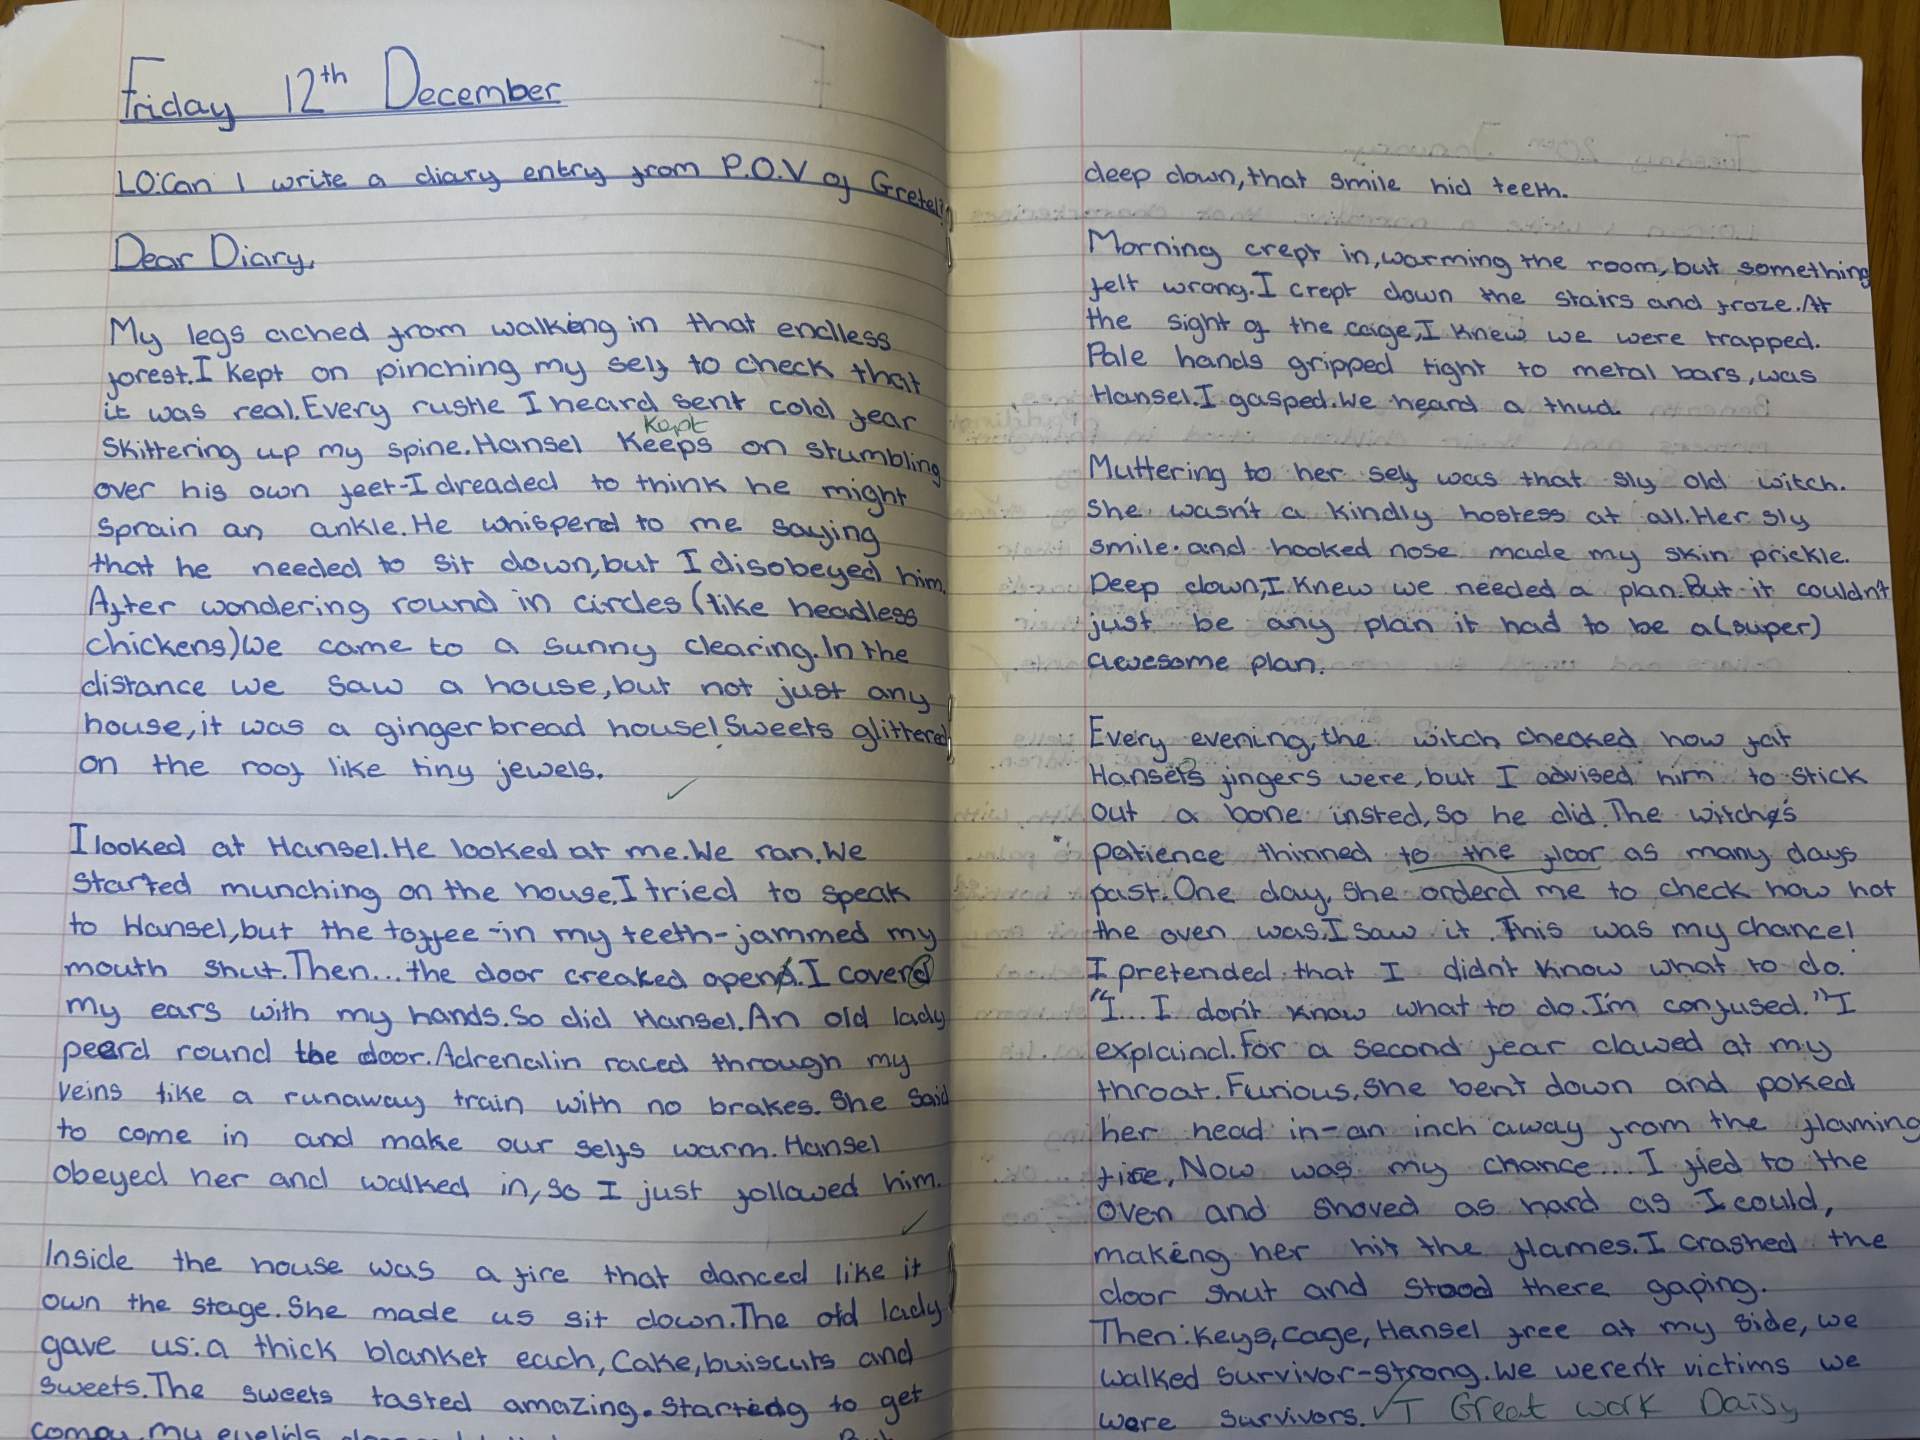 Friday 12th December
LO:Can I write a diary entry from P.O.V of Gretel?
Dear Diary,
My legs ached from walking in that endless
forest.I kept on pinching my self to check that
it was real.Every rustle I heard sent cold fear
Kept
skittering up my spine.Hansel Keeps on stumbling
over his own feet-I dreaded to think he might
sprain an ankle.He whisperd to me saying
that he needed to sit down,but I disobeyed him.
After wondering round in circles (like headless
chickens)We came to a sunny clearing.In the
distance we saw a house,but not just any
house,it was a gingerbread house!Sweets glittered
on the roof like tiny jewels.
I looked at Hansel.He looked at me.We ran.We
started munching on the house.I tried to speak
to Hansel,but the toffee-in my teeth-jammed my
mouth shut.Then...the door creaked open.I coverd
my ears with my hands.So did Hansel.An old lady
peerd round the door.Adrenalin raced through my
veins like a runaway train with no brakes.She said
to come in and make our selfs warm.Hansel
obeyed her and walked in,so I just followed him.
Inside the house was a fire that danced like it
own the stage.She made us sit down.The old lady
gave us:a thick blanket each,cake,buiscuts and
sweets.The sweets tasted amazing.Starting to get
comfy,my eyelids
But
deep down,that smile hid teeth.
Morning crept in,warming the room,but something
felt wrong.I crept down the stairs and froze.At
the sight of the cage,I knew we were trapped.
Pale hands gripped tight to metal bars,was
Hansel.I gasped.We heard a thud.
Muttering to her self was that sly old witch.
She wasn't a kindly hostess at all.Her sly
smile and hooked nose made my skin prickle.
Deep down,I knew we needed a plan.But it couldn't
just be any plan it had to be a(super)
awesome plan.
Every evening,the witch checked how fat
Hansel's fingers were,but I advised him to stick
out a bone insted,so he did.The witch's
patience thinned to the floor as many days
past.One day,she orderd me to check how hot
the oven was.I saw it.This was my chance!
I pretended that I didn't know what to do.
"I...I don't know what to do.I'm confused."I
explaind.For a second fear clawed at my
throat.Furious,she bent down and poked
her head in-an inch away from the flaming
fire,Now was my chance...I fled to the
oven and shoved as hard as I could,
making her hit the flames.I crashed the
door shut and stood there gaping.
Then:keys,cage,Hansel free at my side,we
walked survivor-strong.We weren't victims we
were survivors. ✓T Great work Daisy